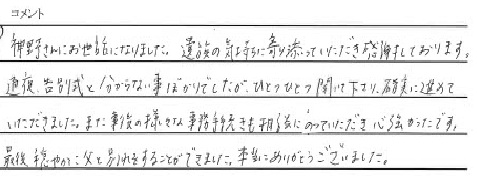 コメント
神野さんにお世話になりました。遺族の気持ちに寄り添っていただき感謝しております。
通夜、告別式と分からない事ばかりでしたが、ひとつひとつ聞いて下さり、確実に進めて
いただきました。また事後の様々な事務手続きも相談にのっていただき心強かったです。
最後、穏やかに父と別れをすることができました。本当にありがとうございました。